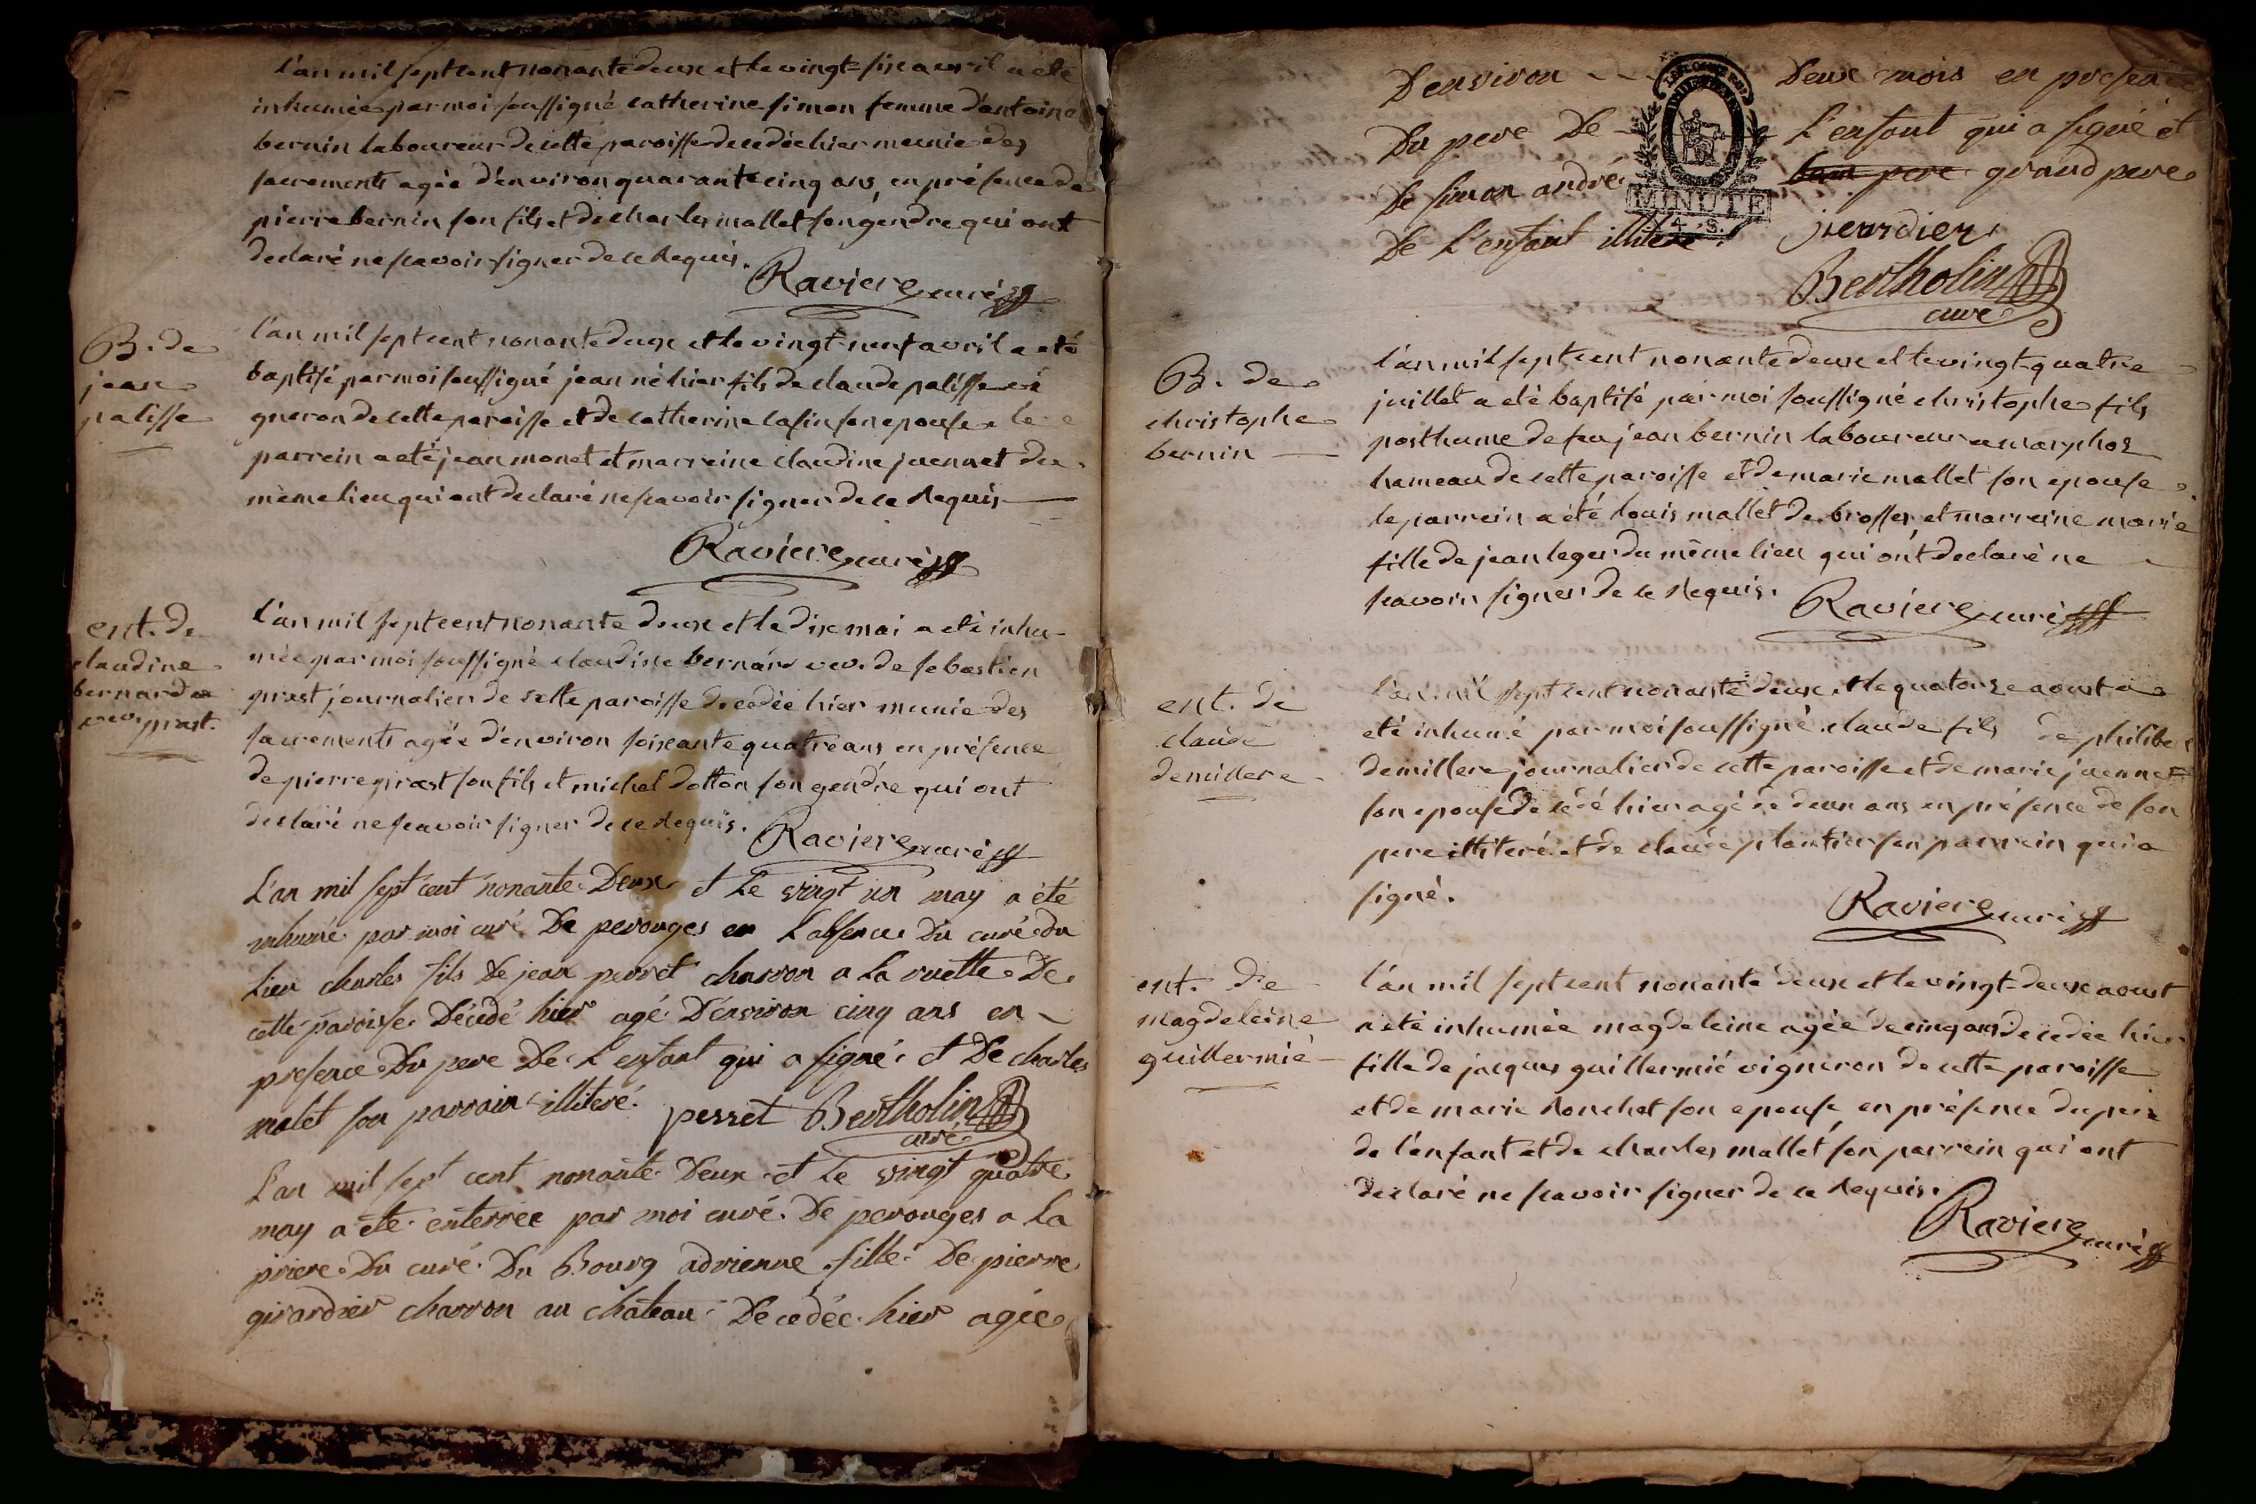 l'an mil sept cent nonante deux et le vingt-six avril a eté
inhumée par moi soussigné catherine simon femme d'antoine
bernin laboureur de cette paroisse decedée hier munie des
sacrements agée d'environ quarante cinq ans, en présence de
pierre bernin son fils et de charles mallet son gendre qui ont
declaré ne scavoir signer de ce requis.
Raviere curé
B. de
jean
palisse
l'an mil sept cent nonante deux et le vingt-neuf avril a eté
baptisé par moi soussigné jean né hier fils de claude palisse vi
gneron de cette paroisse et de catherine son epouse le
parrein a eté jean monet et marreine claudine juennet du
même lieu qui ont declaré ne scavoir signer de ce requis
Raviere curé
ent. de
claudine
bernard
veve prast.
l'an mil sept cent nonante deux et le dix mai a eté inhu-
mée par moi soussigné claudine bernard veve de sebastien
prast journalier de cette paroisse decedée hier munie des
sacrements agée d'environ soixante quatre ans en présence
de pierre prast son fils et michel dotton son gendre qui ont
declaré ne scavoir signer de ce requis.
Raviere curé
L'an mil sept cent nonante Deux et Le vingt un may a été
inhumé par moi curé De perouges en L'absence Du curé du
Lieu charles fils De jean perret charron a La ruette De
cette paroisse Décédé hier agé D'environ cinq ans en
presence Du pere De L'enfant qui a signé et De charles
malet son parrain illiteré. perret Bertholin
curé
L'an mil sept cent nonante Deux et Le vingt quatre
may a été enterree par moi curé De perouges a La
priere Du curé Du Bourg adrienne fille De pierre
girardier charron au château Decedée hier agée
D'environ Deux mois en presence
Du pere De L'enfant qui a signé et
De simon andré pere grand pere
De L'enfant illiteré
MINUTE
4. S.
Bertholin
curé
B. de
christophe
bernin
l'an mil sept cent nonante deux et le vingt-quatre
juillet a eté baptisé par moi soussigné christophe fils
posthume de feu jean bernin laboureur a marphos
hameau de cette paroisse et de marie mallet son epouse
le parrein a été louis mallet de brosses et marreine marie
fille de jean leger du même lieu qui ont declaré ne
scavoir signer de ce requis.
Raviere curé
ent. de
claude
demillere
l'an mil sept cent nonante deux et le quatorze aoust a
eté inhumé par moi soussigné claude fils de philibert
demillere journalier de cette paroisse et de marie juennet
son epouse decedé hier agé de deux ans en présence de son
pere illiteré et de claude plantier son parrein qui a
signé.
Raviere curé
ent. de
magdeleine
guillermié
l'an mil sept cent nonante deux et le vingt-deux aoust
a eté inhumée magdeleine agée de cinq ans decedée hier
fille de jacques guillermié vigneron de cette paroisse
et de marie ronchet son epouse, en présence du pere
de l'enfant et de charles mallet son parrein qui ont
declaré ne scavoir signer de ce requis.
Raviere curé